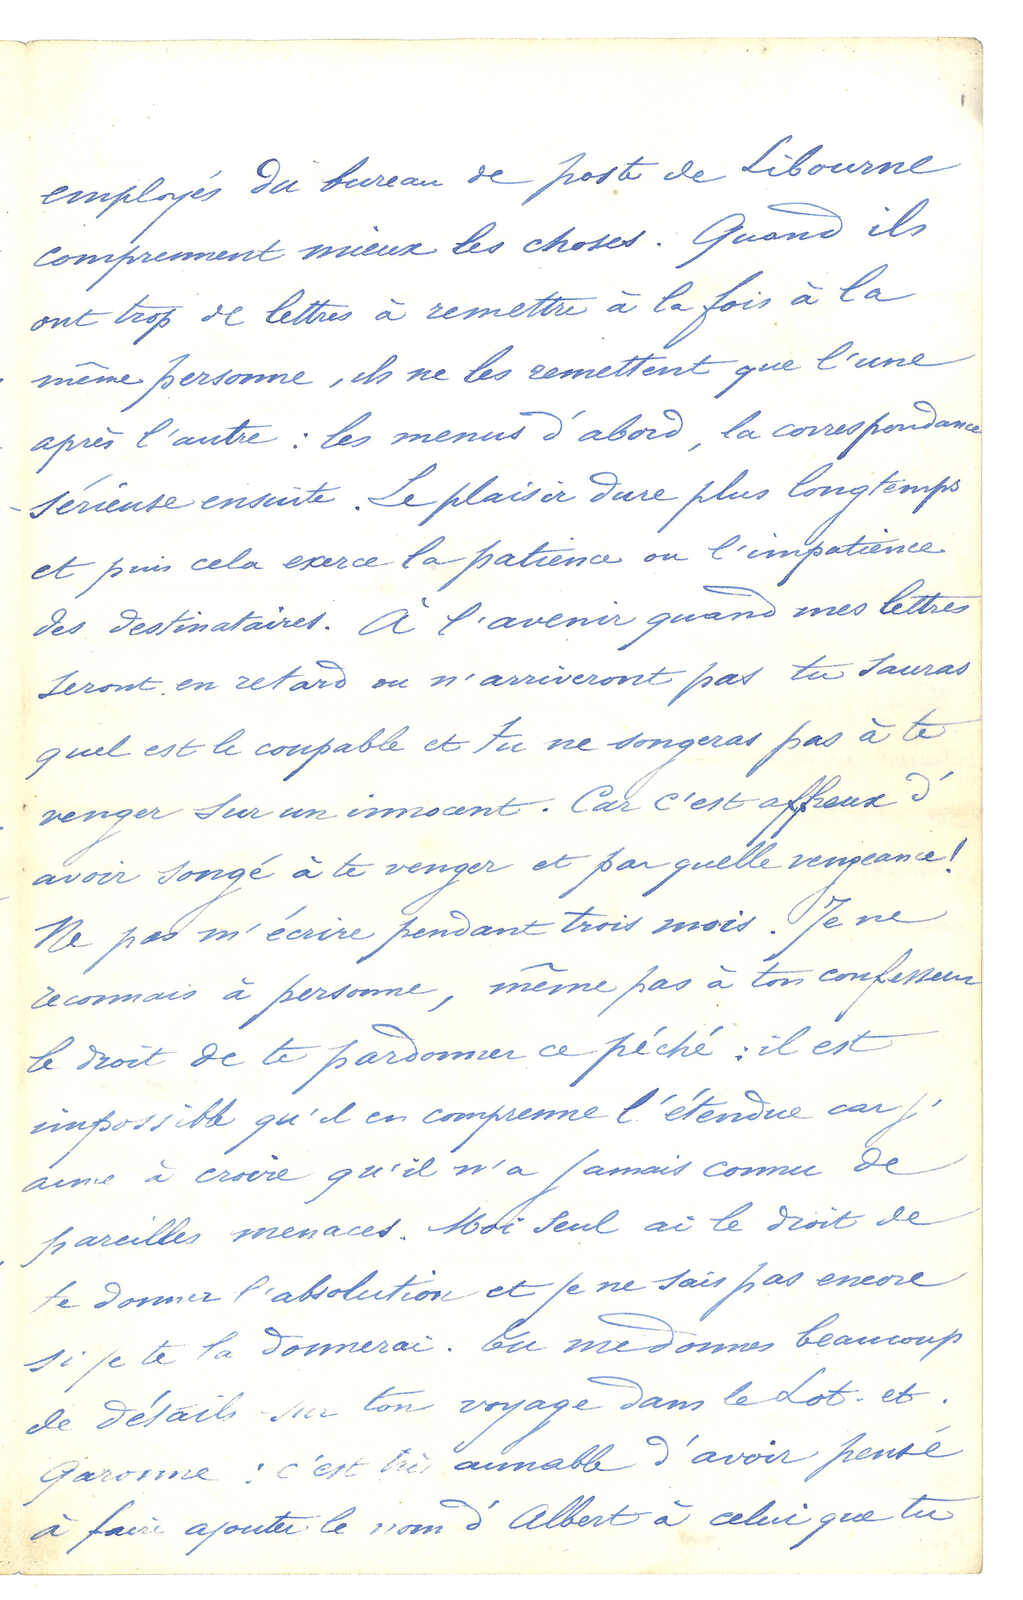 employés du bureau de poste de Libourne
comprennent mieux les choses. Quand ils
ont trop de lettres à remettre à la fois à la
même personne, ils ne les remettent que l'une
après l'autre : les menus d'abord, la correspondance
sérieuse ensuite. Le plaisir dure plus longtemps
et puis cela exerce la patience ou l'impatience
des destinataires. À l'avenir quand mes lettres
seront en retard ou n'arriveront pas tu sauras
quel est le coupable et tu ne songeras pas à te
venger sur un innocent. Car c'est affreux d'
avoir songé à te venger et par quelle vengeance!
Ne pas m'écrire pendant trois mois. Je ne
reconnais à personne, même pas à ton confesseur
le droit de te pardonner ce péché : il est
impossible qu'il en comprenne l'étendue car j'
aime à croire qu'il n'a jamais connu de
pareilles menaces. Moi seul ai le droit de
te donner l'absolution et je ne sais pas encore
si je te la donnerai. Tu me donnes beaucoup
de détails sur ton voyage dans le Lot-et-
Garonne : c'est très aimable d'avoir pensé
à faire ajouter le nom d'Albert à celui que tu